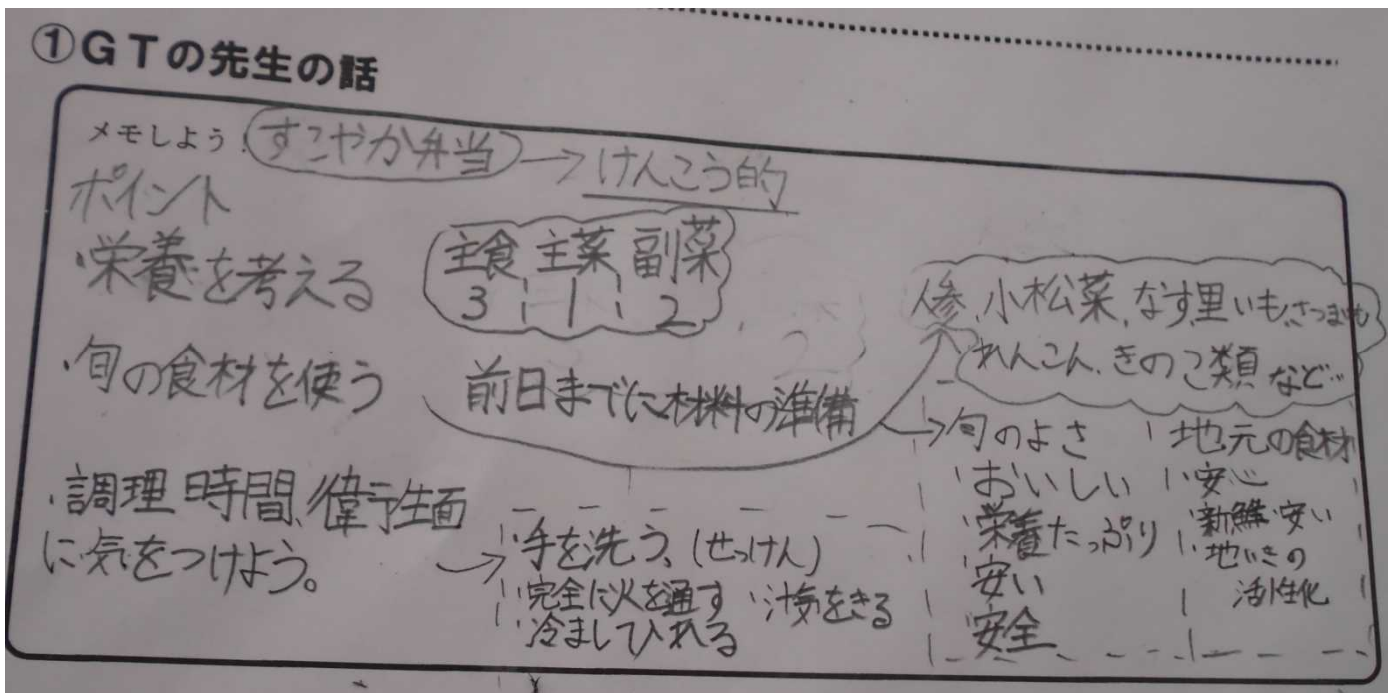 ①GTの先生の話
メモしよう.すこやか弁当→けんこう的
ポイント
・栄養を考える
主食 主菜 副菜
3:1:2
・旬の食材を使う
前日までに材料の準備
人参、小松菜、なす、里いも、さつまいも
れんこん、きのこ類 など…
・調理時間、衛生面
に気をつけよう。
→・手を洗う、(せっけん)
・完全に火を通す ・汁気をきる
・冷まして入れる
→旬のよさ
・おいしい
・栄養たっぷり
・安い
・安全
地元の食材
・安心
・新鮮・安い
・地いきの
活性化